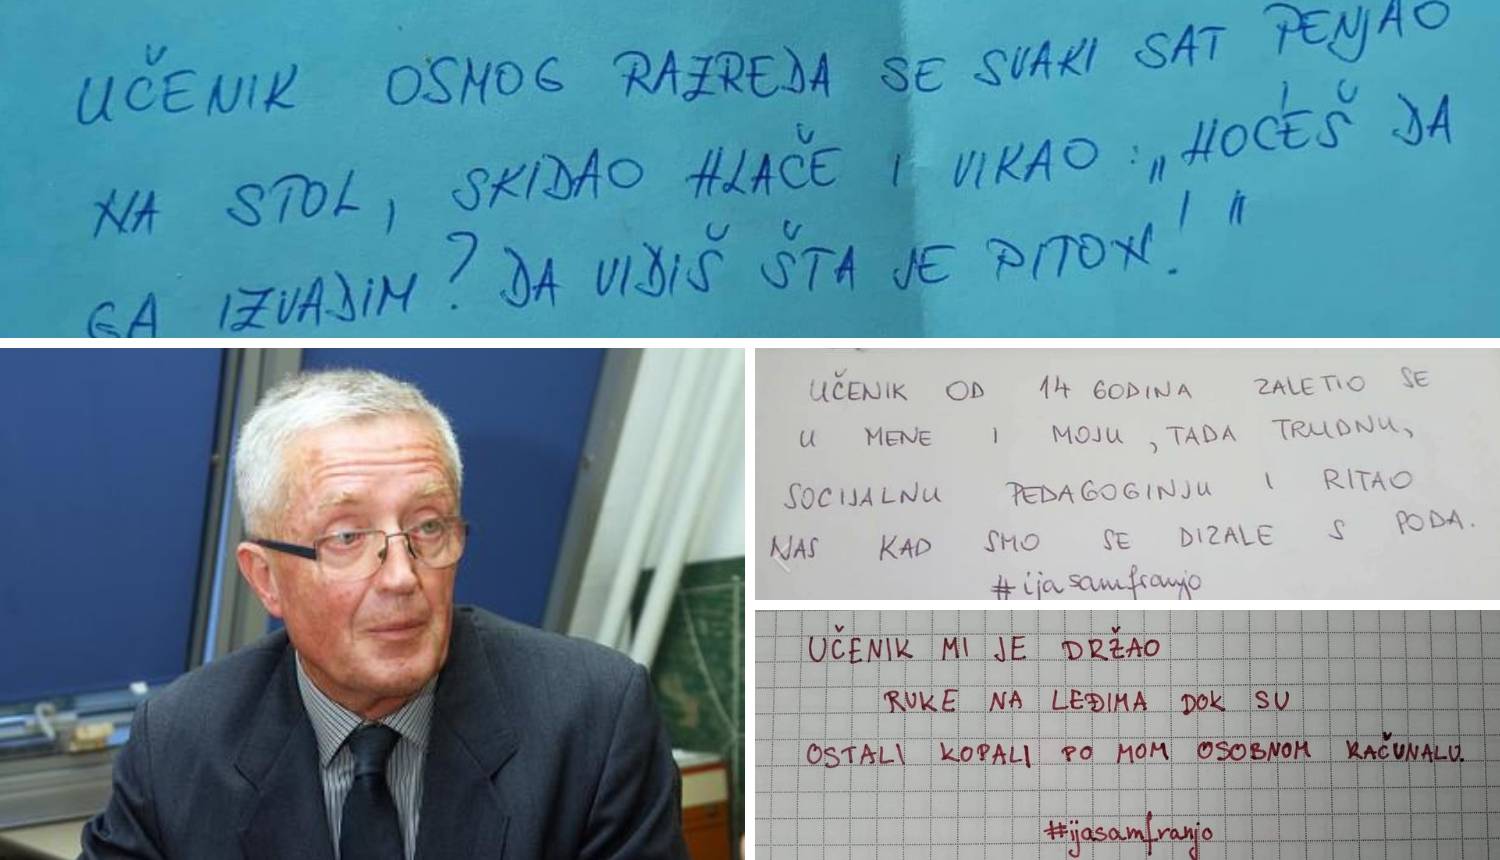 UČENIK OSMOG RAZREDA SE SVAKI SAT PENJAO
NA STOL, SKIDAO HLAČE I VIKAO: „HOĆEŠ DA
GA IZVADIM? DA VIDIŠ ŠTA JE PITON!"
UČENIK OD 14 GODINA ZALETIO SE
U MENE I MOJU, TADA TRUDNU,
SOCIJALNU PEDAGOGINJU I RITAO
NAS KAD SMO SE DIZALE S PODA.
#ijasamfranjo
UČENIK MI JE DRŽAO
RUKE NA LEĐIMA DOK SU
OSTALI KOPALI PO MOM OSOBNOM RAČUNALU.
#ijasamfranjo